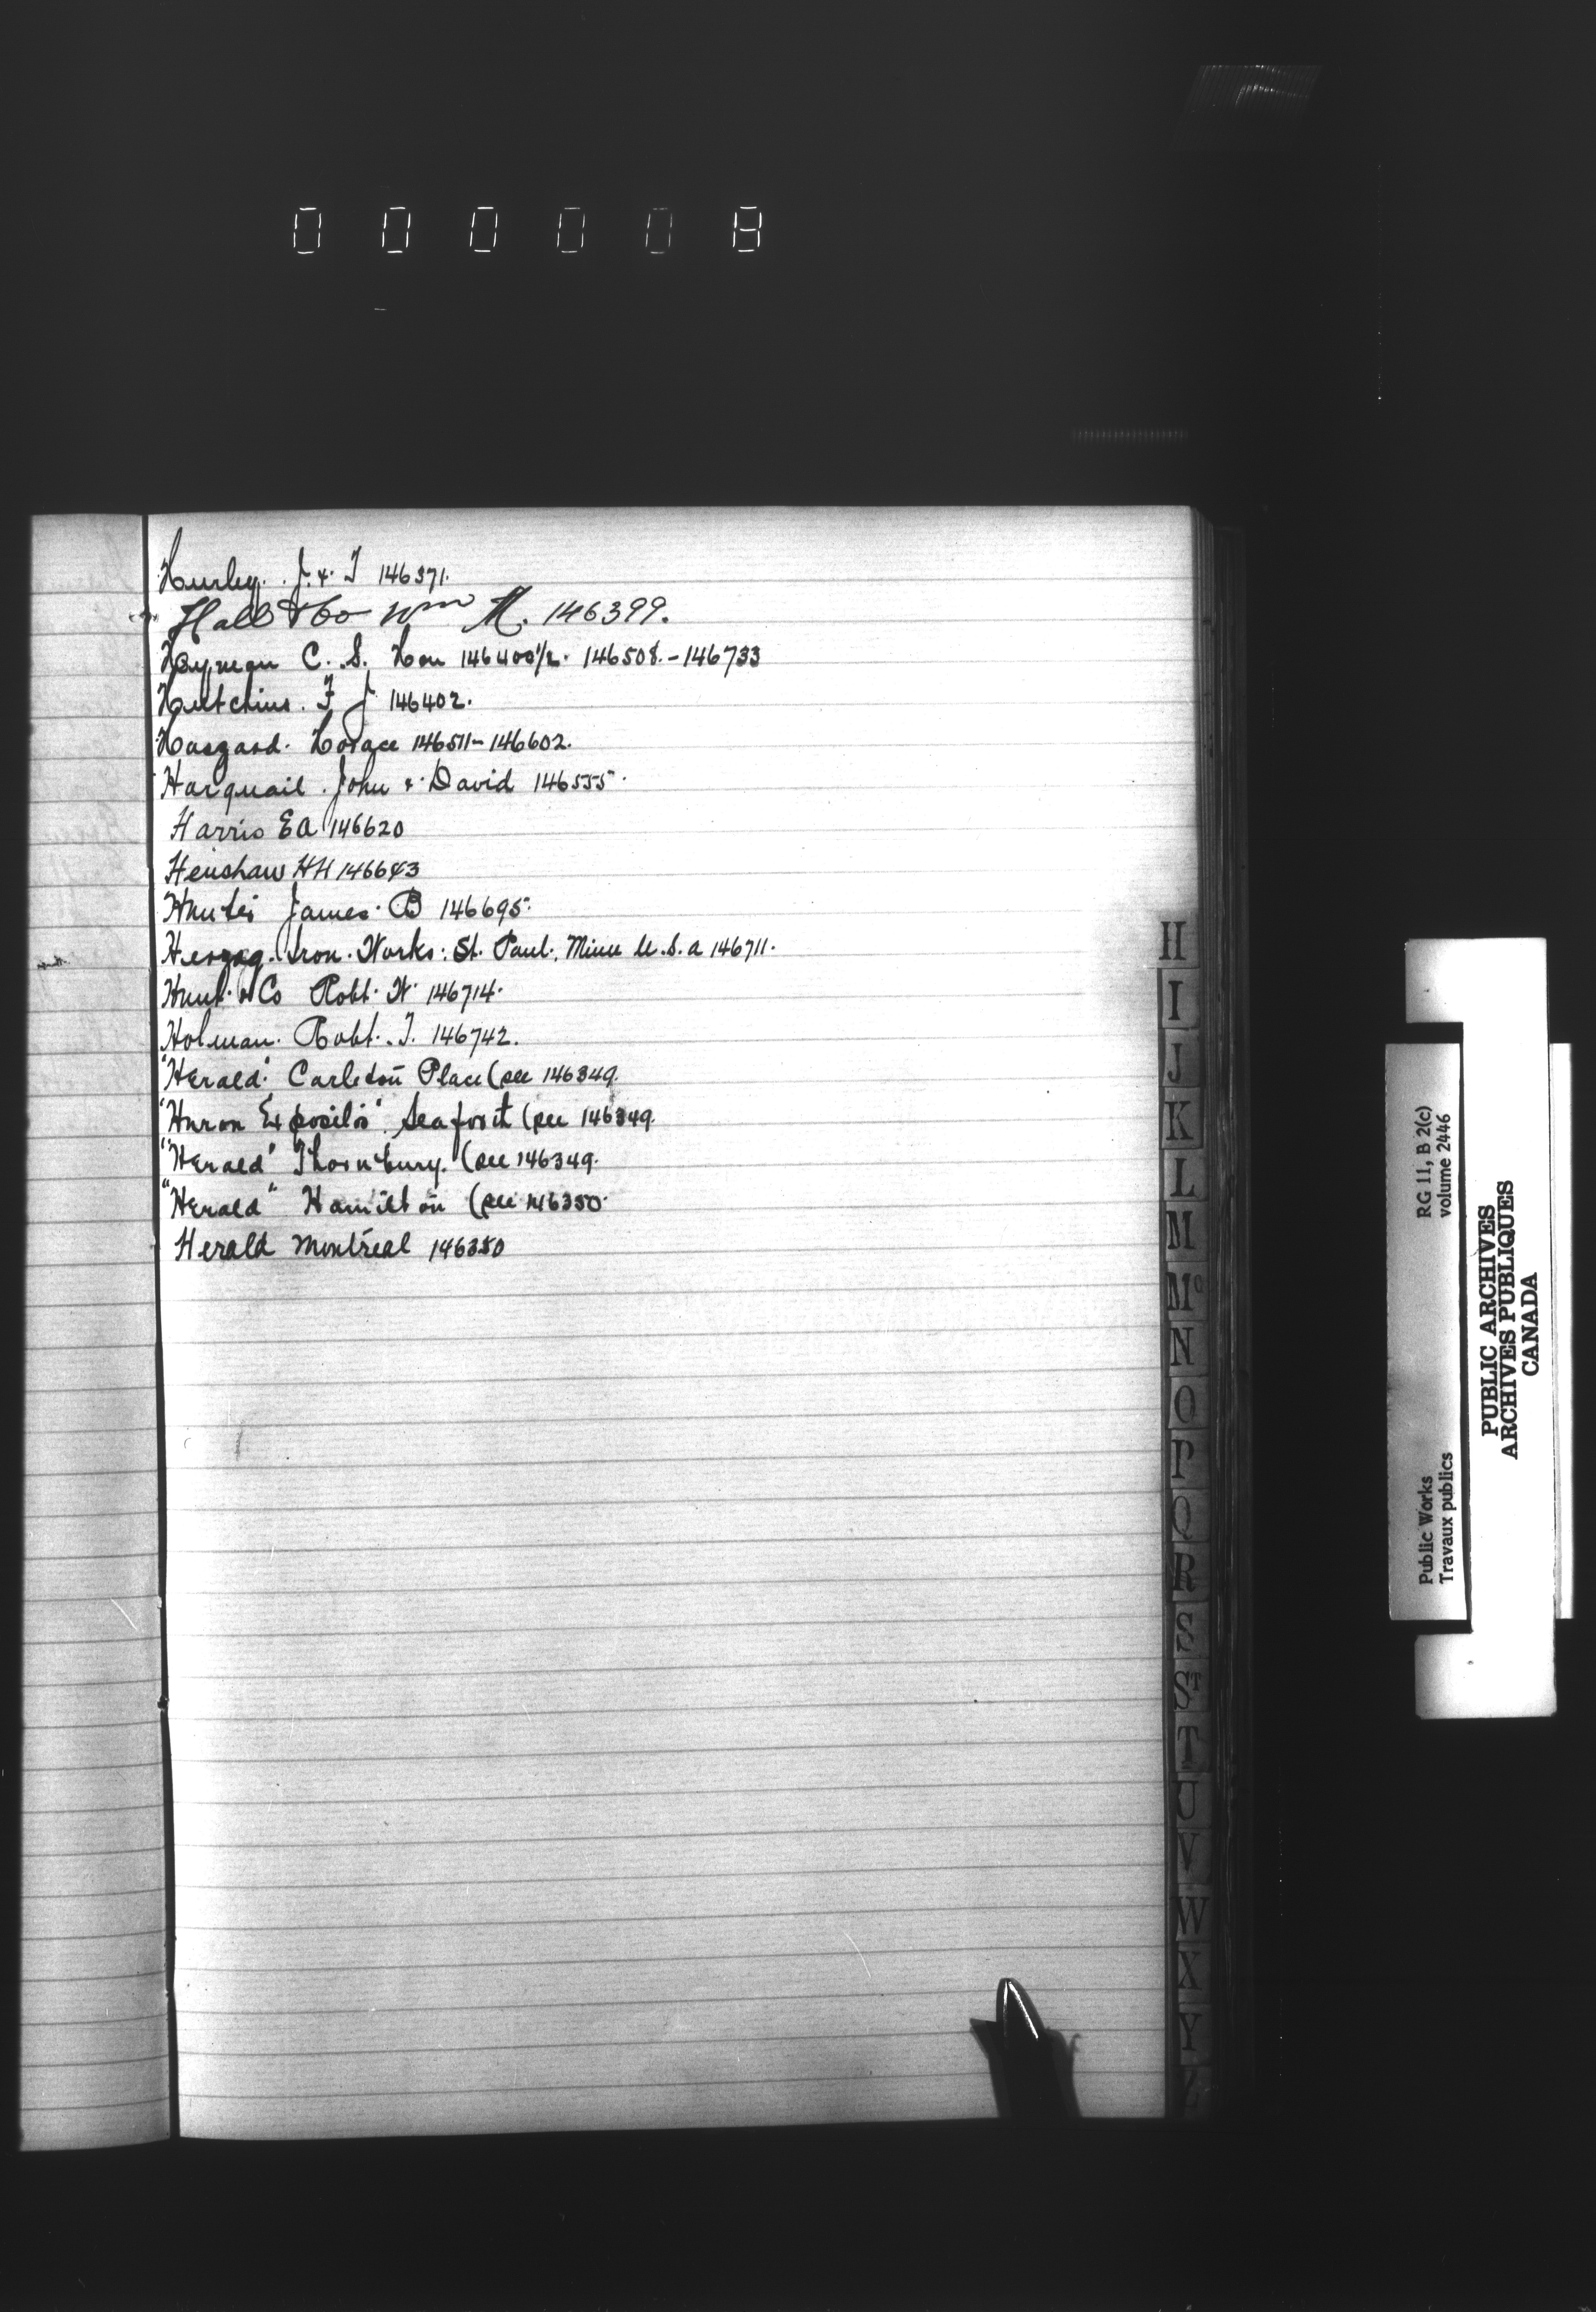 000008
Hurley. J. & T 146371.
Hall & Co Wm H. 146399.
Hayman C. S. Hon 146400½. 146508.-146733
Hutchins. F J 146402.
Haszard. Horace 146511-146602.
Harquail. John & David 146555.
Harris E A 146620
Henshaw HH 146643
Hunter James. B 146695.
Herzog. Iron. Works: St. Paul. Minn U.S.A 146711.
Hunt. & Co Robt. W. 146714.
Holman. Robt. T. 146742.
"Herald." Carleton Place (see 146349.
"Huron Expositor". Seaforth (see 146349.
"Herald" Thornbury. (see 146349.
"Herald" Hamilton (see 146350.
Herald Montreal 146350
H
I
J
K
L
M
Mc
N
O
P
Q
R
S
ST
T
U
V
W
X
Y
Z
Public Works RG 11, B 2(c)
Travaux publics volume 2446
PUBLIC ARCHIVES
ARCHIVES PUBLIQUES
CANADA